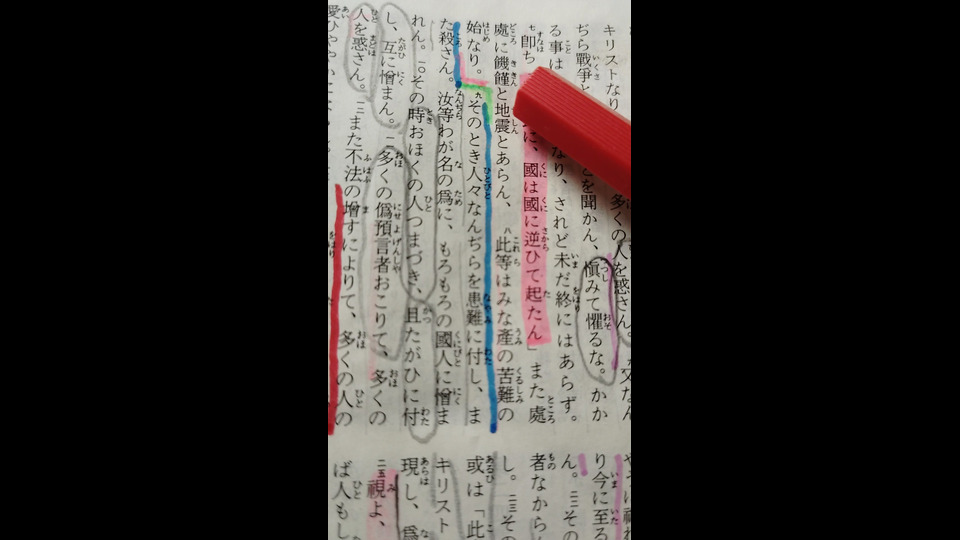 キリストなり 多くの人を惑さん。又なん
ぢら戰爭と とを聞かん、愼みて懼るな。かか
る事は なり、されど未だ終にはあらず。
七 卽ち に、國は國に逆ひて起たん」また處
處に饑饉と地震とあらん、八 此等はみな產の苦難の
始なり。九 そのとき人々なんぢらを患難に付し、ま
た殺さん。汝等わが名の爲に、もろもろの國人に憎ま
れん。一〇その時おほくの人つまづき、且たがひに付
し、互に憎まん。一一多くの僞預言者おこりて、多くの
人を惑さん。一二また不法の增すによりて、多くの人の
り今に至る
ん。二二その
者なから
し。二三その
或は「此
キリスト
現し、爲
二五視よ、
ば人もし